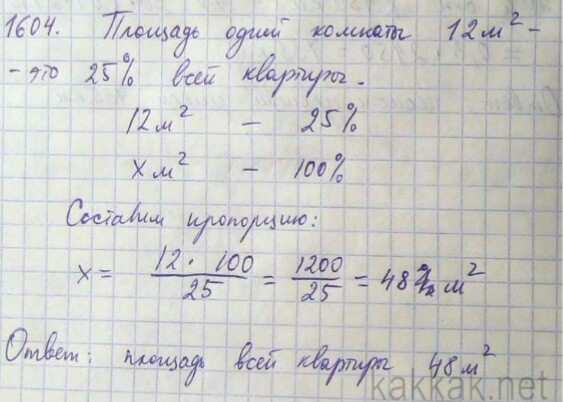 1604. Площадь одной комнаты 12 м² -
- это 25% всей квартиры.
12 м² – 25%
х м² – 100%
Составим пропорцию:
х = 12 · 100 / 25 = 1200 / 25 = 48 м²
Ответ: площадь всей квартиры 48 м²
kakkak.net